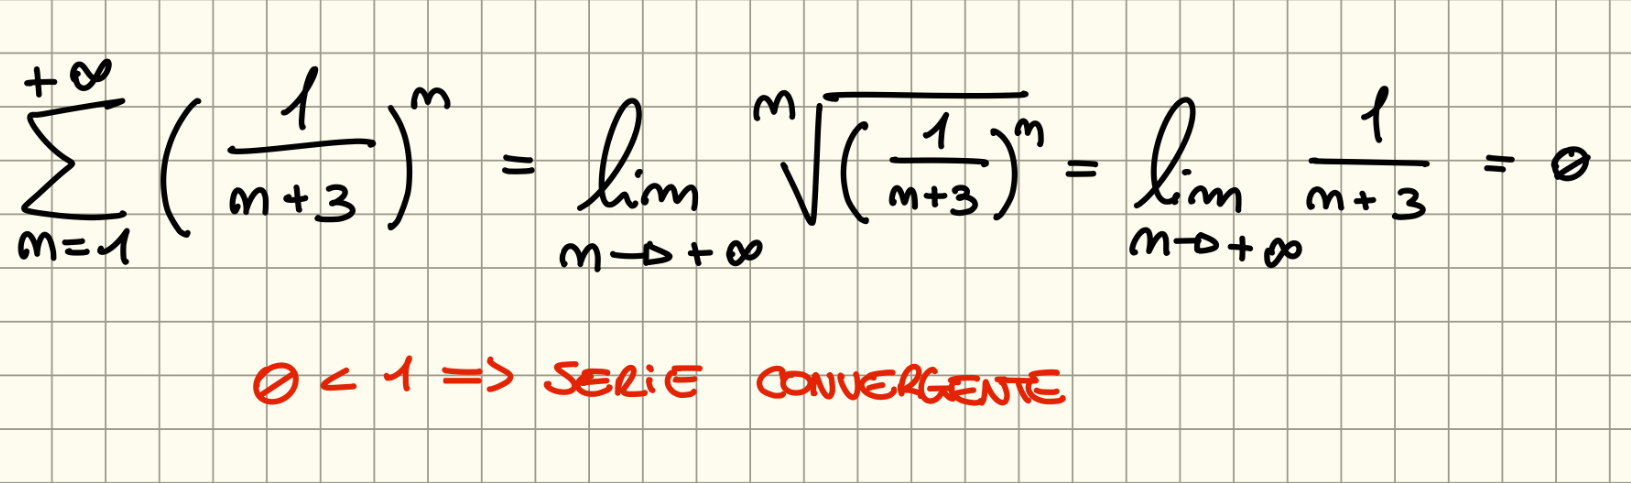 +∞ ∑ n=1 (1/(n+3))^n = lim n→+∞ n√((1/(n+3))^n) = lim n→+∞ 1/(n+3) = 0
0 < 1 => SERIE CONVERGENTE